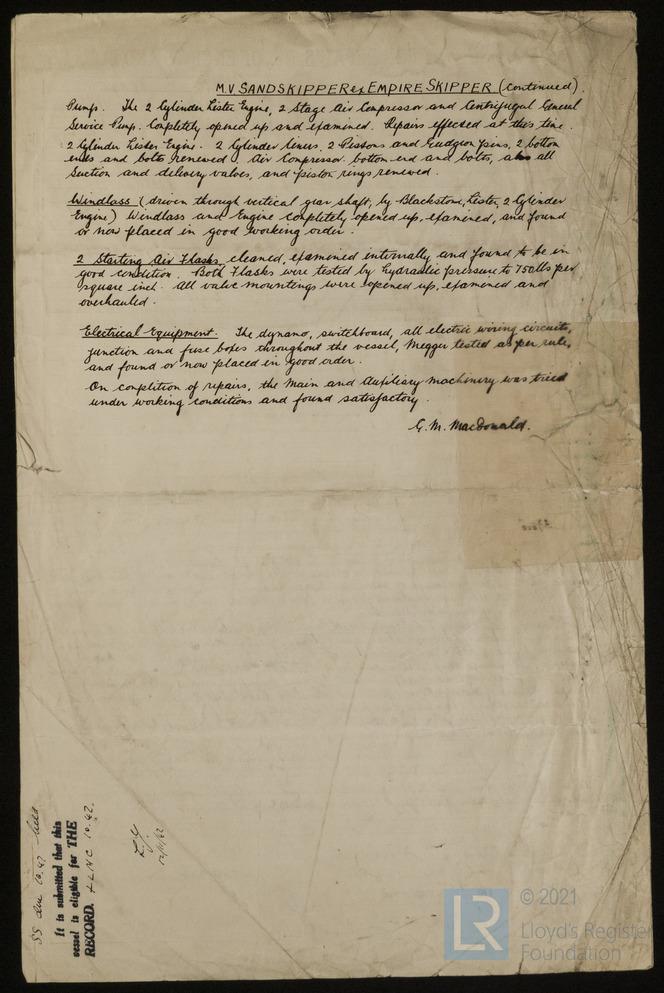 M.V SANDSKIPPER ex EMPIRE SKIPPER (continued).
Pump. The 2 Cylinder Lister Engine, 2 Stage Air Compressor and Centrifugal General
Service Pump. Completely opened up and examined. Repairs effected at this time.
2 Cylinder Lister Engine. 2 Cylinder liners, 2 Pistons and Gudgeon pins, 2 bottom
ends and bolts renewed. Air Compressor. bottom end and bolts, also all
Suction and delivery valves, and piston rings renewed.
Windlass (driven through vertical gear shaft, by Blackstone, Lister, 2 Cylinder
Engine) Windlass and Engine completely opened up, examined, and found
or now placed in good working order.
2 Starting Air Flasks, cleaned, examined internally and found to be in
good condition. Both Flasks were tested by hydraulic pressure to 750lbs per
square inch. All valve mountings were opened up, examined and
overhauled.
Electrical Equipment. The dynamo, switchboard, all electric wiring circuits,
junction and fuse boxes throughout the vessel, Megger tested as per rule,
and found or now placed in good order.
On completion of repairs, the Main and Auxiliary machinery was tried
under working conditions and found satisfactory.
G. M. MacDonald.
SS due 10.47
It is submitted that this
vessel is eligible for THE
RECORD. + LNC 10.42.
© 2021
LR
Lloyd's Register
Foundation